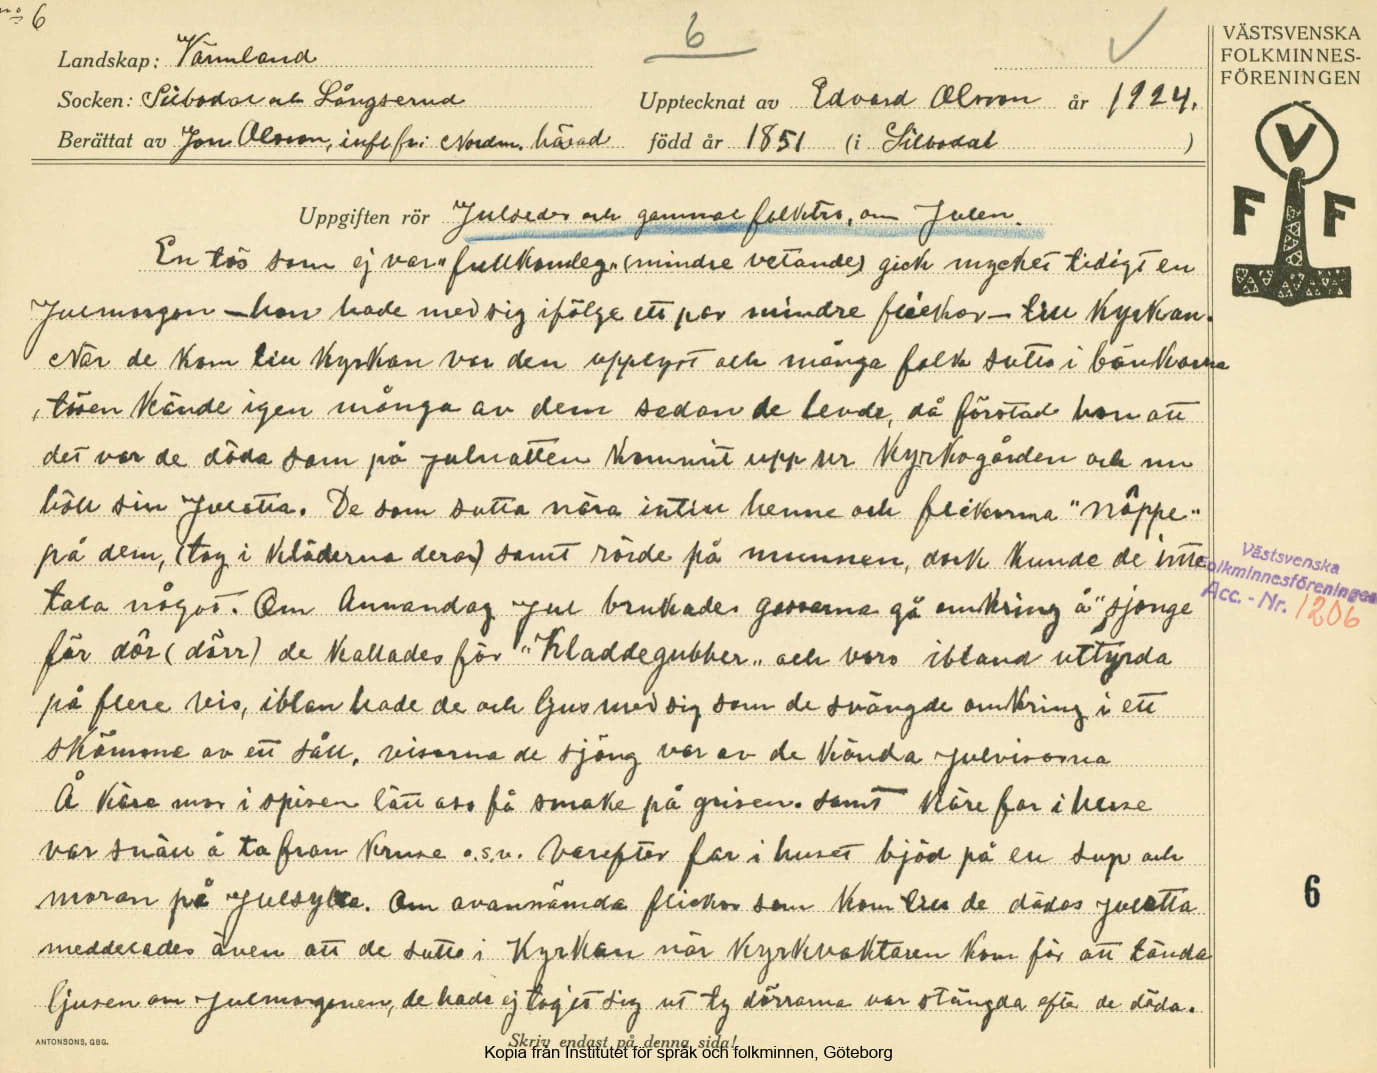 nº 6
6
Landskap: Värmland
Socken: Silbodal och Långserud
Upptecknat av Edvard Olsson år 1924.
Berättat av Jon Olsson, inft fr: Nordm. härad född år 1851 (i Silbodal )
VÄSTSVENSKA
FOLKMINNES-
FÖRENINGEN
V
F F
Uppgiften rör Julseder och gammal folktro, om Julen.
En tös som ej var "fullkomleg" (mindre vetande) gick mycket tidigt en
Julmorgon — hon hade med sig ifölge ett par mindre flickor — till Kyrkan.
När de kom till Kyrkan var den upplyst och många folk sutto i bänkarna
, tösen kände igen många av dem sedan de levde, då förstod hon att
det var de döda som på julnatten kommit upp ur Kyrkogården och nu
höll sin Julotta. De som sutto nära intill henne och flickorna "nôppe"
på dem, (tog i kläderna deras) samt rörde på munnen, dock kunde de inte
tala något. Om Annandag Jul brukades gossarna gå omkring å "sjonge
för dôr (dörr) de kallades för "Kladdegubber" och voro ibland uttyrda
på flere vis, iblan hade de och ljus med sig som de svängde omkring i ett
skämme av ett såll, visorna de sjöng var av de kända julvisorna
Å käre mor i spisen lätt oss få smake på grisen. samt käre far i huse
var snäll å ta fram kruse o.s.v. Varefter far i huset bjöd på en sup och
moran på Julsylta. Om ovannämda flickor som kom till de dödas julotta
meddelades även att de sutto i Kyrkan när Kyrkvaktaren kom för att tända
ljusen om Julmorgonen, de hade ej tog'et sig ut ty dörrarna var stängda efte de döda.
Västsvenska
Folkminnesföreningen
Acc. - Nr. 1206
6
ANTONSONS, GBG.
Skriv endast på denna sida!
Kopia från Institutet för språk och folkminnen, Göteborg